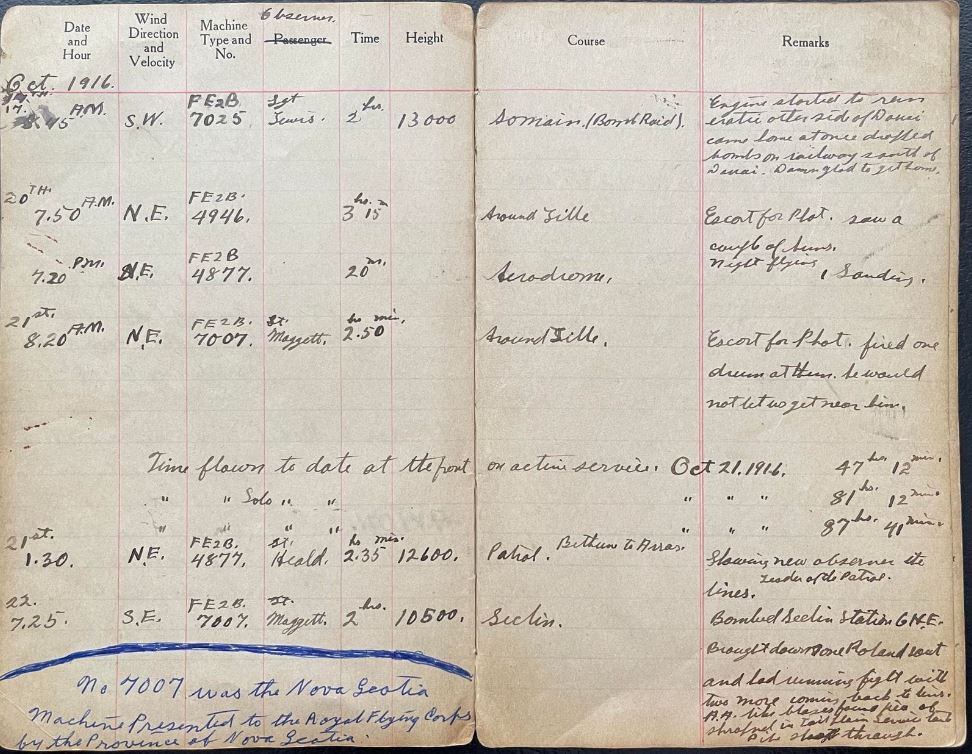 Date and Hour
Wind Direction and Velocity
Machine Type and No.
Observer
Passenger
Time
Height
Course
Remarks
Oct. 1916.
17. 8.45 A.M. S.W. FE2B 7025 Sgt Lewis. 2 hrs. 13000 Somain. (Bomb Raid).
Engine started to run
eratic other side of Douai
came home at once dropped
bombs on railway south of
Douai. Damn glad to get home.
20TH. 7.50 A.M. N.E. FE2B. 4946. 3 hrs. 15 m Around Lille Escort for Phot. saw a
couple of huns.
7.20 P.M. N.E. FE2B 4877. 20 m. Aerodrome. Night flying, Landing.
21st. 8.20 A.M. N.E. FE2B. 7007. Lt. Maggett. 2.50 hrs min. Around Lille. Escort for Phot. fired one
drum at Hun. he would
not let us get near him.
Time flown to date at the front on active service. Oct 21. 1916. 47 hrs. 12 min.
" " Solo " " " " " 81 hrs. 12 min.
" " " " " " " 87 hrs. 41 min.
21st. 1.30. N.E. FE2B. 4877. Lt. Heald. 2.35 hrs min. 12600. Patrol. Bethune to Arras. Showing new observer the
lines. Leader of the Patrol.
22. 7.25. S.E. FE2B. 7007. Lt. Maggett. 2 hrs. 10500. Seclin. Bombed Seclin Station G.H.E.
Brought down one Roland scout
and had running fight with
two more coming back to lines.
A.A. was blazes found piece of
shrapnel in Tail plain Service tank
Pet. shot through.
No 7007 was the Nova Scotia
Machine Presented to the Royal Flying Corps
by the Province of Nova Scotia.